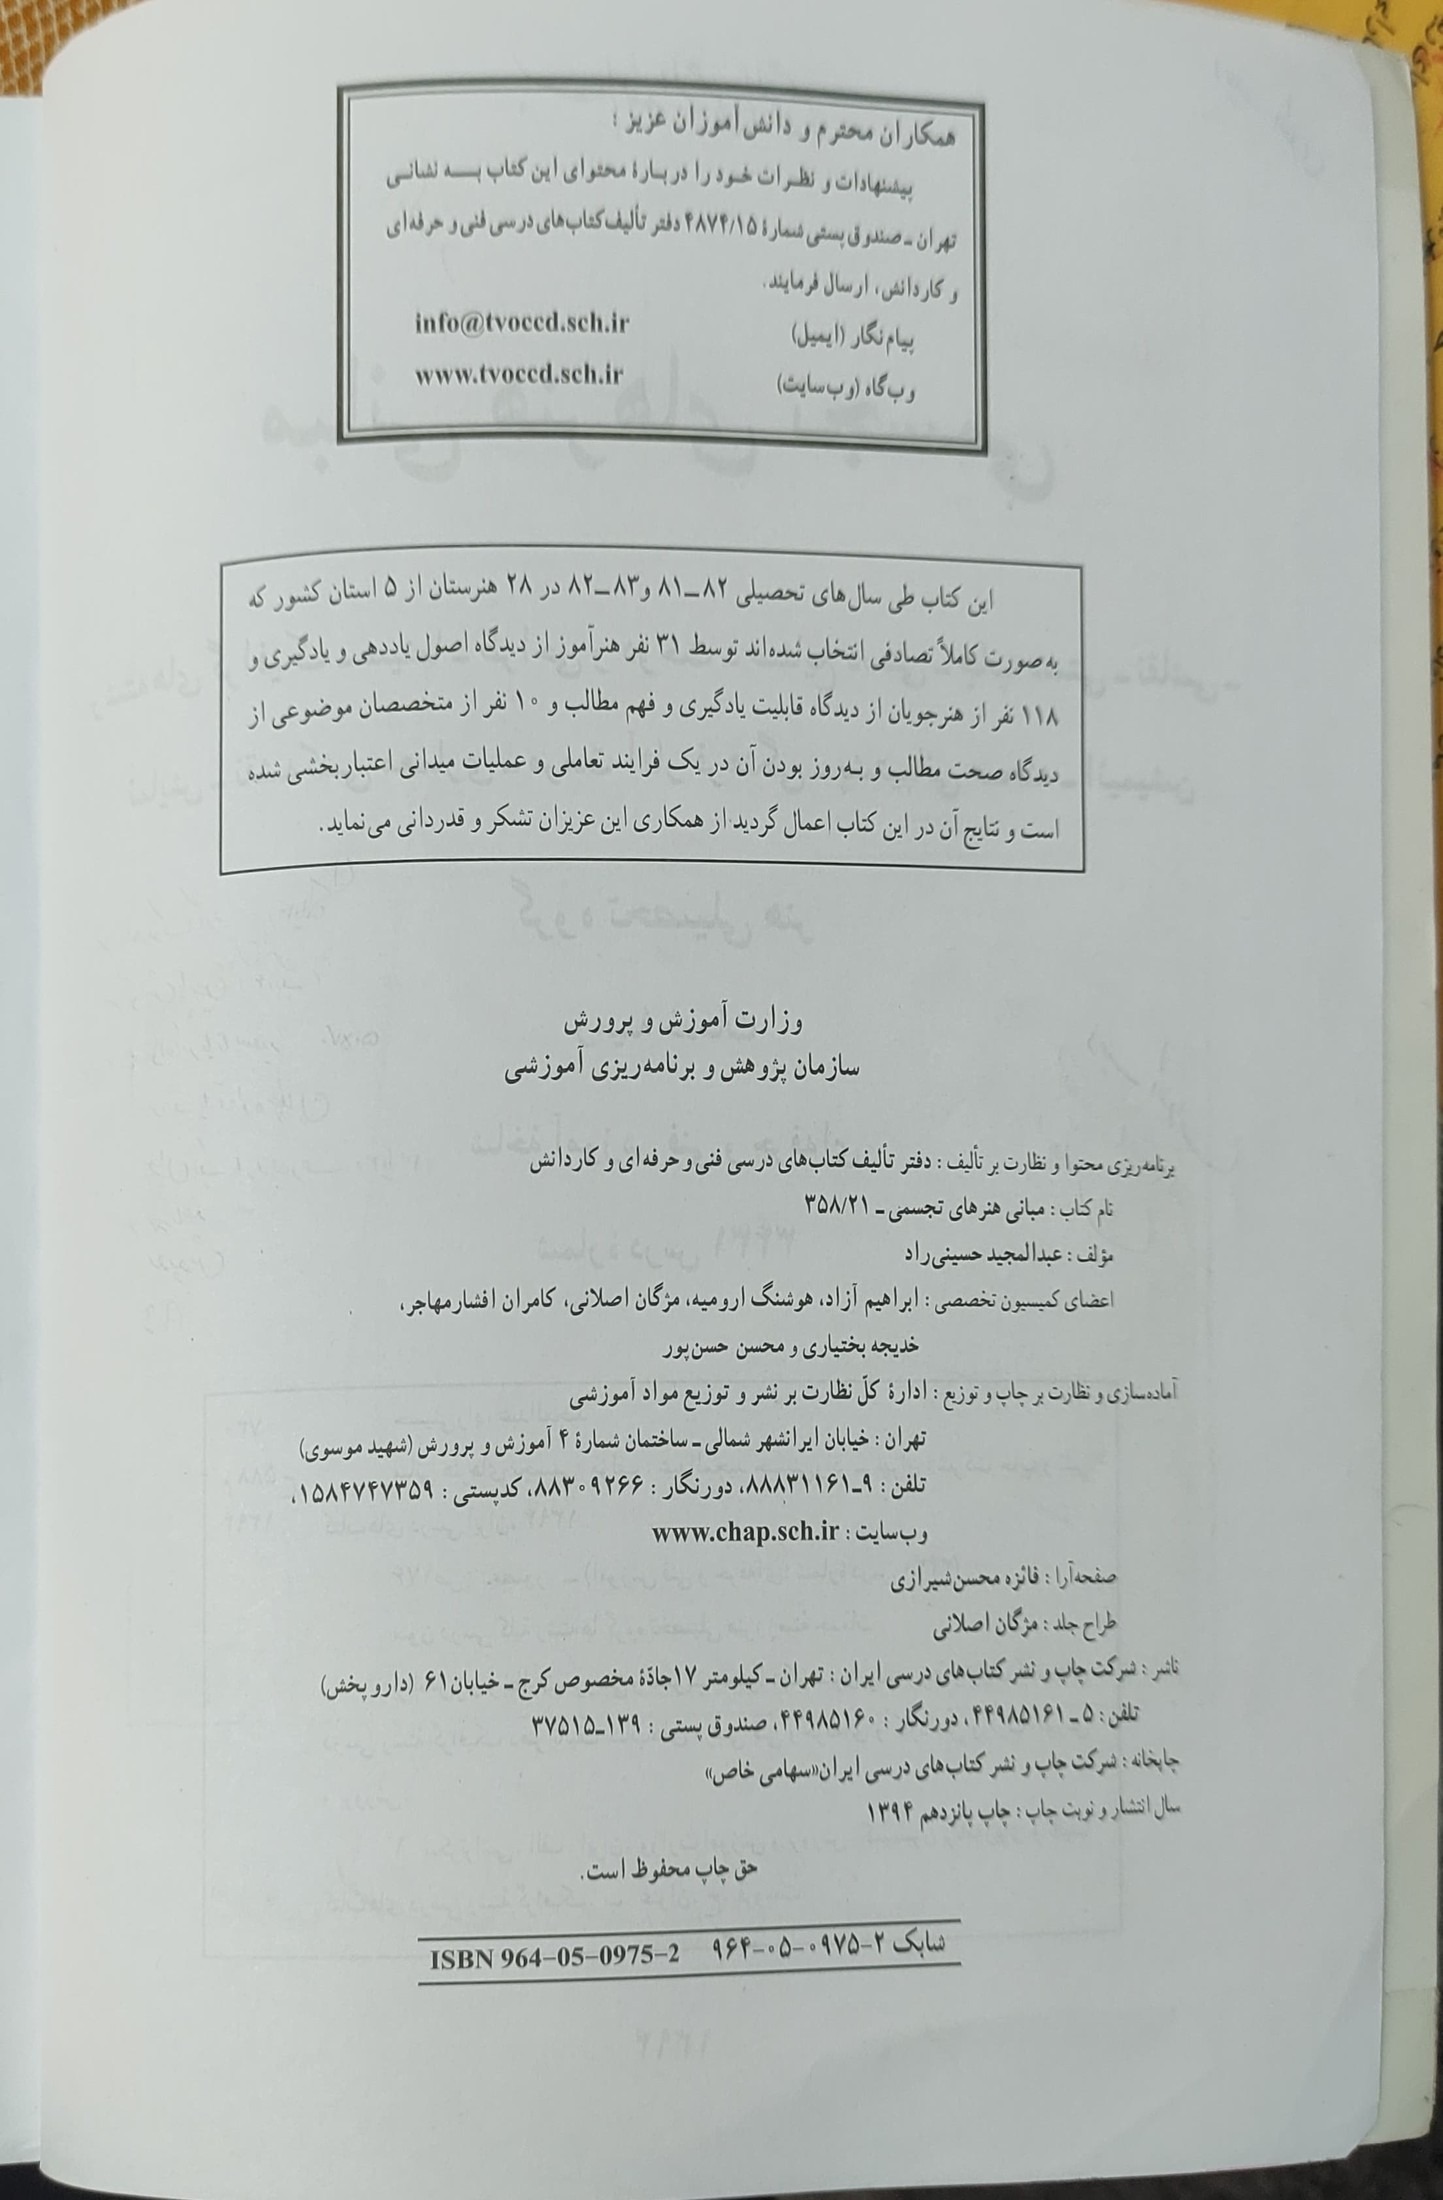 همکاران محترم و دانش‌آموزان عزیز :
پیشنهادات و نظرات خود را دربارهٔ محتوای این کتاب به نشانی
تهران ـ صندوق پستی شمارهٔ ۴۸۷۴/۱۵ دفتر تألیف کتاب‌های درسی فنی و حرفه‌ای
و کاردانش، ارسال فرمایند.
پیام‌نگار (ایمیل) info@tvoccd.sch.ir
وب‌گاه (وب‌سایت) www.tvoccd.sch.ir
این کتاب طی سال‌های تحصیلی ۸۲ــ۸۱ و۸۳ــ۸۲ در ۲۸ هنرستان از ۵ استان کشور که
به‌صورت کاملاً تصادفی انتخاب شده‌اند توسط ۳۱ نفر هنرآموز از دیدگاه اصول یاددهی و یادگیری و
۱۱۸ نفر از هنرجویان از دیدگاه قابلیت یادگیری و فهم مطالب و ۱۰ نفر از متخصصان موضوعی از
دیدگاه صحت مطالب و به‌روز بودن آن در یک فرایند تعاملی و عملیات میدانی اعتباربخشی شده
است و نتایج آن در این کتاب اعمال گردید از همکاری این عزیزان تشکر و قدردانی می‌نماید.
وزارت آموزش و پرورش
سازمان پژوهش و برنامه‌ریزی آموزشی
برنامه‌ریزی محتوا و نظارت بر تألیف : دفتر تألیف کتاب‌های درسی فنی و حرفه‌ای و کاردانش
نام کتاب : مبانی هنرهای تجسمی ـ ۳۵۸/۲۱
مؤلف : عبدالمجید حسینی‌راد
اعضای کمیسیون تخصصی : ابراهیم آزاد، هوشنگ ارومیه، مژگان اصلانی، کامران افشارمهاجر،
خدیجه بختیاری و محسن حسن‌پور
آماده‌سازی و نظارت بر چاپ و توزیع : ادارهٔ کلّ نظارت بر نشر و توزیع مواد آموزشی
تهران : خیابان ایرانشهر شمالی ـ ساختمان شمارهٔ ۴ آموزش و پرورش (شهید موسوی)
تلفن : ۹ـ۸۸۸۳۱۱۶۱، دورنگار : ۸۸۳۰۹۲۶۶، کدپستی : ۱۵۸۴۷۴۷۳۵۹،
وب‌سایت : www.chap.sch.ir
صفحه‌آرا : فائزه محسن‌شیرازی
طراح جلد : مژگان اصلانی
ناشر : شرکت چاپ و نشر کتاب‌های درسی ایران : تهران ـ کیلومتر ۱۷ جادّهٔ مخصوص کرج ـ خیابان ۶۱ (داروپخش)
تلفن : ۵ ـ ۴۴۹۸۵۱۶۱، دورنگار : ۴۴۹۸۵۱۶۰، صندوق پستی : ۱۳۹ـ۳۷۵۱۵
چاپخانه : شرکت چاپ و نشر کتاب‌های درسی ایران«سهامی خاص»
سال انتشار و نوبت چاپ : چاپ پانزدهم ۱۳۹۴
حق چاپ محفوظ است.
شابک ۲-۰۹۷۵-۰۵-۹۶۴ ISBN 964-05-0975-2